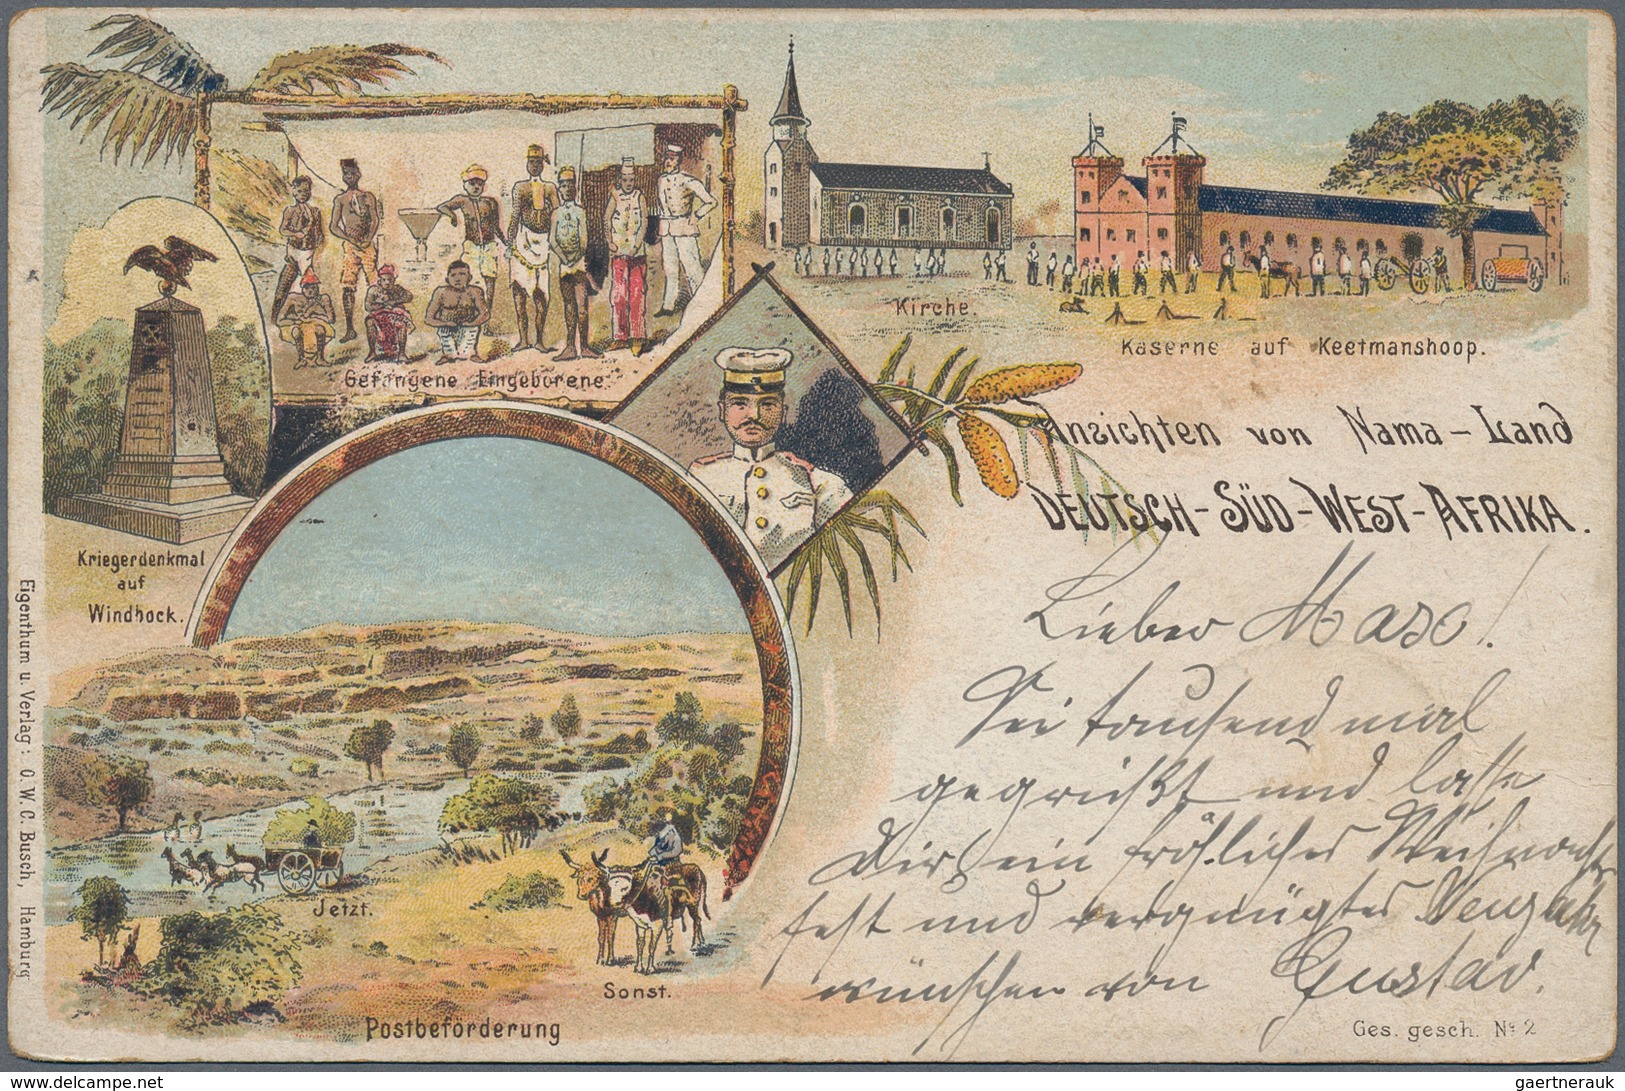 Gefangene Eingeborene
Kirche.
Kaserne auf Keetmanshoop.
Ansichten von Nama-Land
DEUTSCH-SÜD-WEST-AFRIKA.
Kriegerdenkmal
auf
Windhock.
Eigenthum u. Verlag: O.W.C. Busch, Hamburg
Jetzt.
Sonst.
Postbeförderung
Lieber
Sei tausend mal
gegrüßt und lasse
Dir ein fröhliches Weihnachts
fest und vergnügtes Neujahr
wünschen von Gustav.
Ges. gesch. No 2
delcampe.net
gaertnerauk